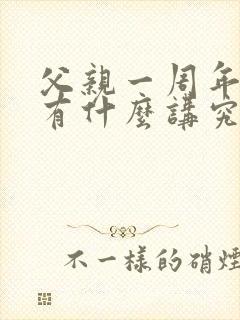 父親一周年
有什麼講究
不一樣的硝煙